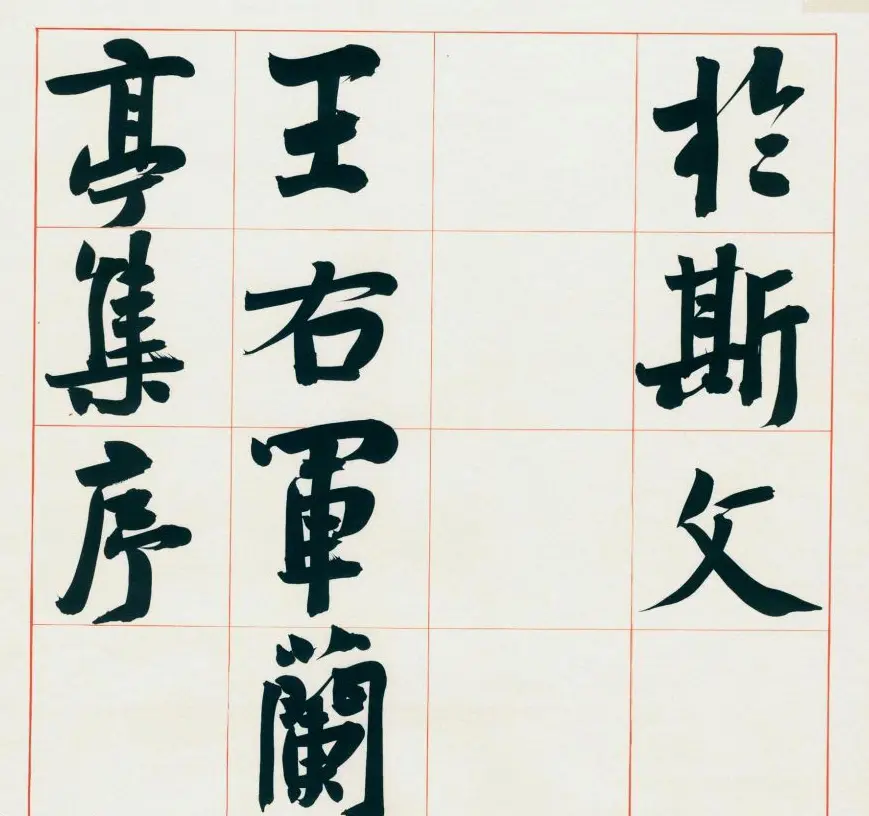 於斯文
王右軍蘭
亭集序